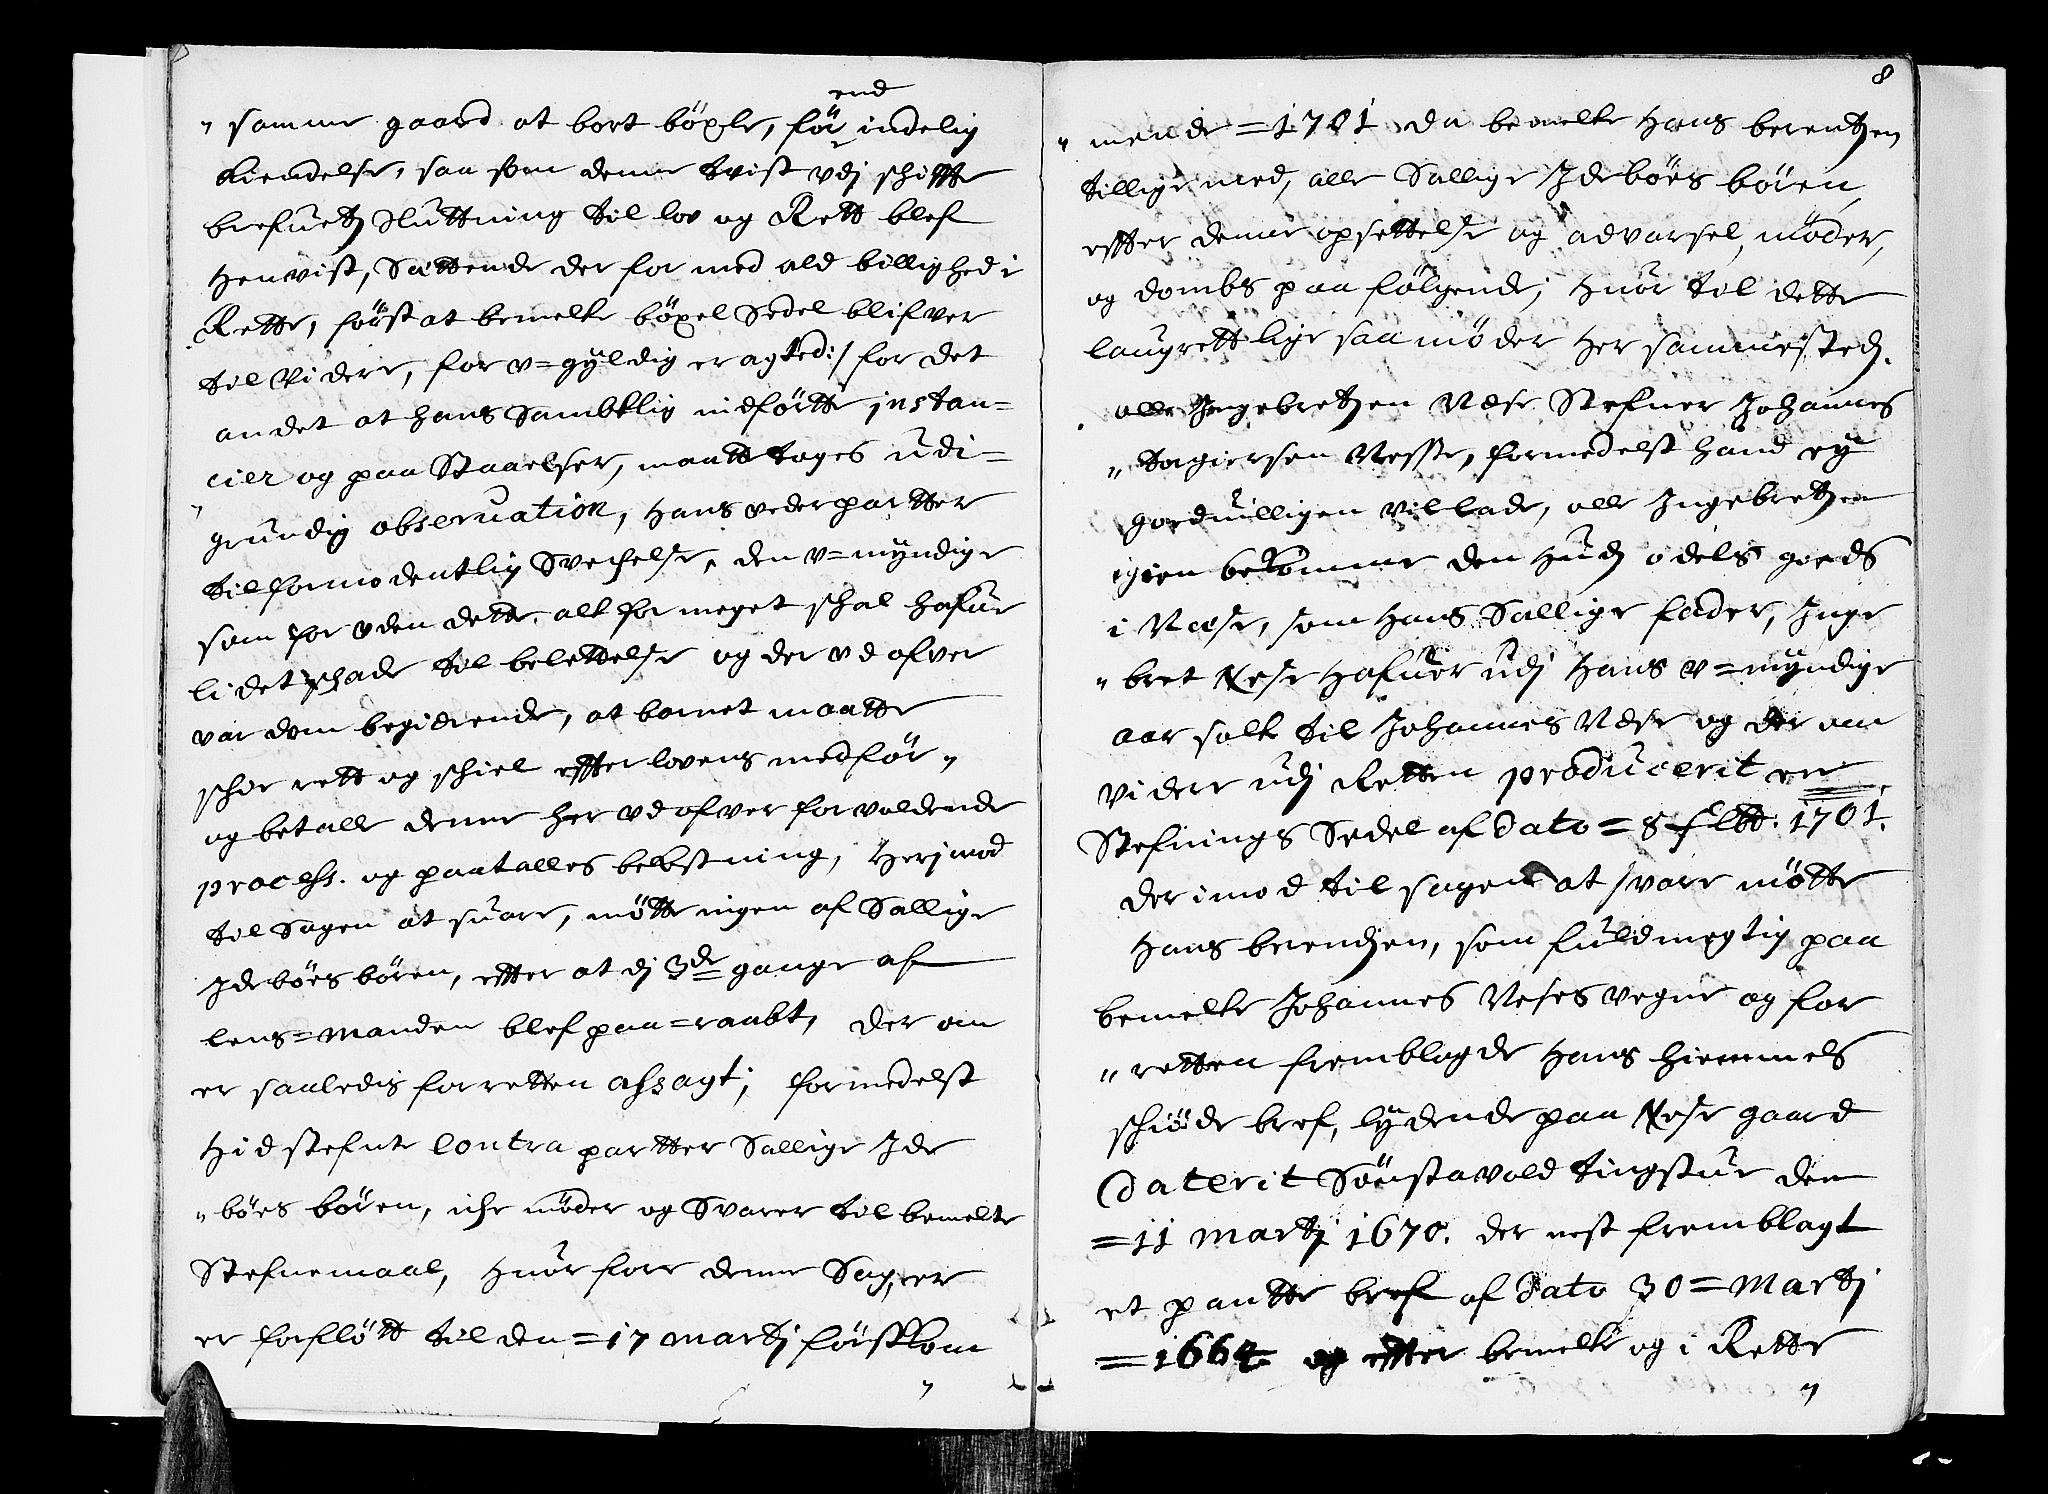 end
" samme gaard at bort böxle, för indelig
kiendelse, saa som denne tvist udj schiffte
brefuetz sluttning til lov og Rett blef
Henvist, Sattende der for med ald billighed i
Rette, först at bemelte böxel Sedel blifver
til Videre, for v=gyldig eragted:/ for det
andet at hans Sambtlig indförtte jnstan=
" cier og paa Staaelser, maatte tages udi=
grundig observation, Hans vederpartter
til formodentlig Svechelse, den v=myndige
som for uden dette, alt for meget schal hafue
lidet schade til belettelse og der ud ofver
var dom begierende, at barnet maatte
schee rett og schiel effter lovens medför "
og betalle denne her ud ofver forvoldende
process. og paatalles bekostning, Herjmod
til Sagen at suare, mötte ingen af Sallige
Ide böes bören, effter at dj 3de gange af
lens=manden blef paa=raabt, Der om
er saaledis for retten afsagt; formedelst
Hid stefnte Contra partter Sallige Ide
" böes bören, iche möder og Svarer til bemelte
Stefnemaal, Huor fore denne Sag, er
er forflött til den =17 martj förstkom
"
8
" mende =1701 da bemelte Hans berentzen
tillige med, alle Sallige Ide böes bören,
effter denne opsettelse og advarsel, möder,
og dombs paa fölgende; Huor til dette
laugrett lige saa möder Her sammestedz.
olle Ingebretzen Næse Stefner Johannes
" Torgiersen Nesse, formedelst hand ey
goedvilligen vil lade, olle Ingebretzen
igien bekomme den Hudz odels goeds
i Næse, som Hans Sallige fader, Inge
" bret Nese Hafuer udj Hans v=myndige
aar solt til Johannes Næse og der om
videre udj Retten producerit er
Stefnings Sedel af dato = 8 1701.
Der imod til sagen at svare mötte
Hans berendzen, som fuldmegtig paa
bemelte Johannes Neses vegne og for
" retten fremblagde Hans hiemmels
schiöde bref, lydende paa Nese gaard
Daterit Sönstavold tingstue den
=11 martj 1670. der nest fremblagt
et pantte bref af dato 30=Martj
=1664 og effter bemelte og i Rette
"